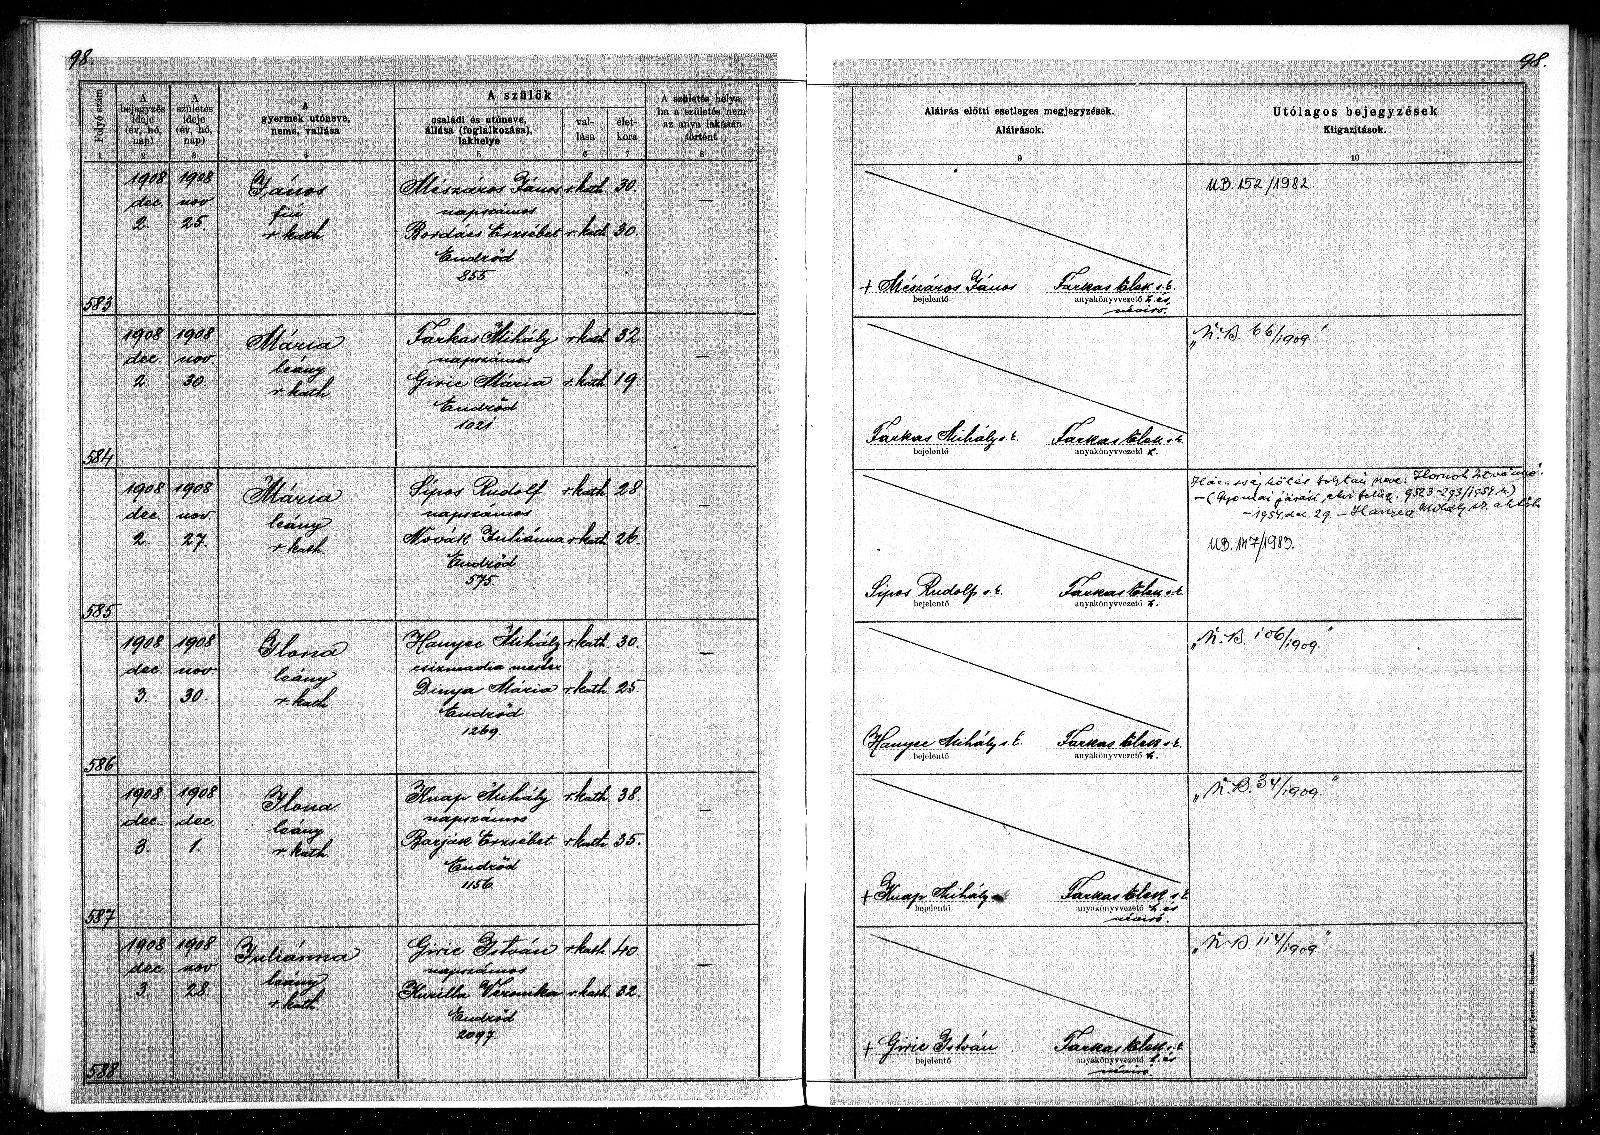 98.
Folyó szám
A bejegyzés ideje (év, hó, nap)
A születés ideje (év, hó, nap)
A gyermek utóneve, neme, vallása
A szülők
családi és utóneve, állása (foglalkozása), lakhelye
val-lása
élet-kora
A születés helye, ha a születés nem az anya lakásán történt
1 2 3 4 5 6 7 8
583
1908 dec. 2.
1908 nov 25.
János
fiú
r. kath.
Mészáros János r. kath. 30.
napszámos
Bordács Erzsébet r. kath. 30.
Endrőd
855
—
584
1908 dec. 2.
1908 nov. 30.
Mária
leány
r. kath.
Farkas Mihály r. kath. 32.
napszámos
Giric Mária r. kath. 19.
Endrőd
1021
—
585
1908 dec. 2.
1908 nov. 27.
Mária
leány
r. kath.
Sipos Rudolf r. kath. 28.
napszámos
Novák Juliánna r. kath. 26.
Endrőd
575.
—
586
1908 dec. 3.
1908 nov. 30.
Ilona
leány
r. kath.
Hanyec Mihály r. kath. 30.
csizmadia mester
Dinya Mária r. kath. 25.
Endrőd
1269.
—
587
1908 dec. 3.
1908 dec. 1.
Ilona
leány
r. kath.
Knap Mihály r. kath. 38.
napszámos
Barják Erzsébet r. kath. 35.
Endrőd
1156.
—
588
1908 dec 3.
1908 nov 28.
Juliánna
leány
r. kath.
Giric István r. kath. 40
napszámos
Kurilla Veronika r. kath. 32.
Endrőd
2097.
—
98.
Aláírás előtti esetleges megjegyzések.
Aláírások.
Utólagos bejegyzések
Kiigazítások.
9 10
UB. 152/1982
+ Mészáros János Farkas Elek s. k.
bejelentő anyakönyvvezető h. és
névíró.
„N. B. 66/1909"
Farkas Mihály s. k. Farkas Elek s. k.
bejelentő anyakönyvvezető h.
Házasságkötés folytán neve
9523-293/1954.
1954. dec. 29.
UB. 147/1983.
Sipos Rudolf s. k. Farkas Elek s. k.
bejelentő anyakönyvvezető h.
„N. B. 106/1909."
Hanyec Mihály s. k. Farkas Elek s. k.
bejelentő anyakönyvvezető h.
„N. B. 34/1909"
+ Knap Mihály Farkas Elek s. k.
bejelentő anyakönyvvezető h. és
névíró.
„N. B. 114/1909"
+ Giric István Farkas Elek s. k.
bejelentő anyakönyvvezető h. és
névíró.